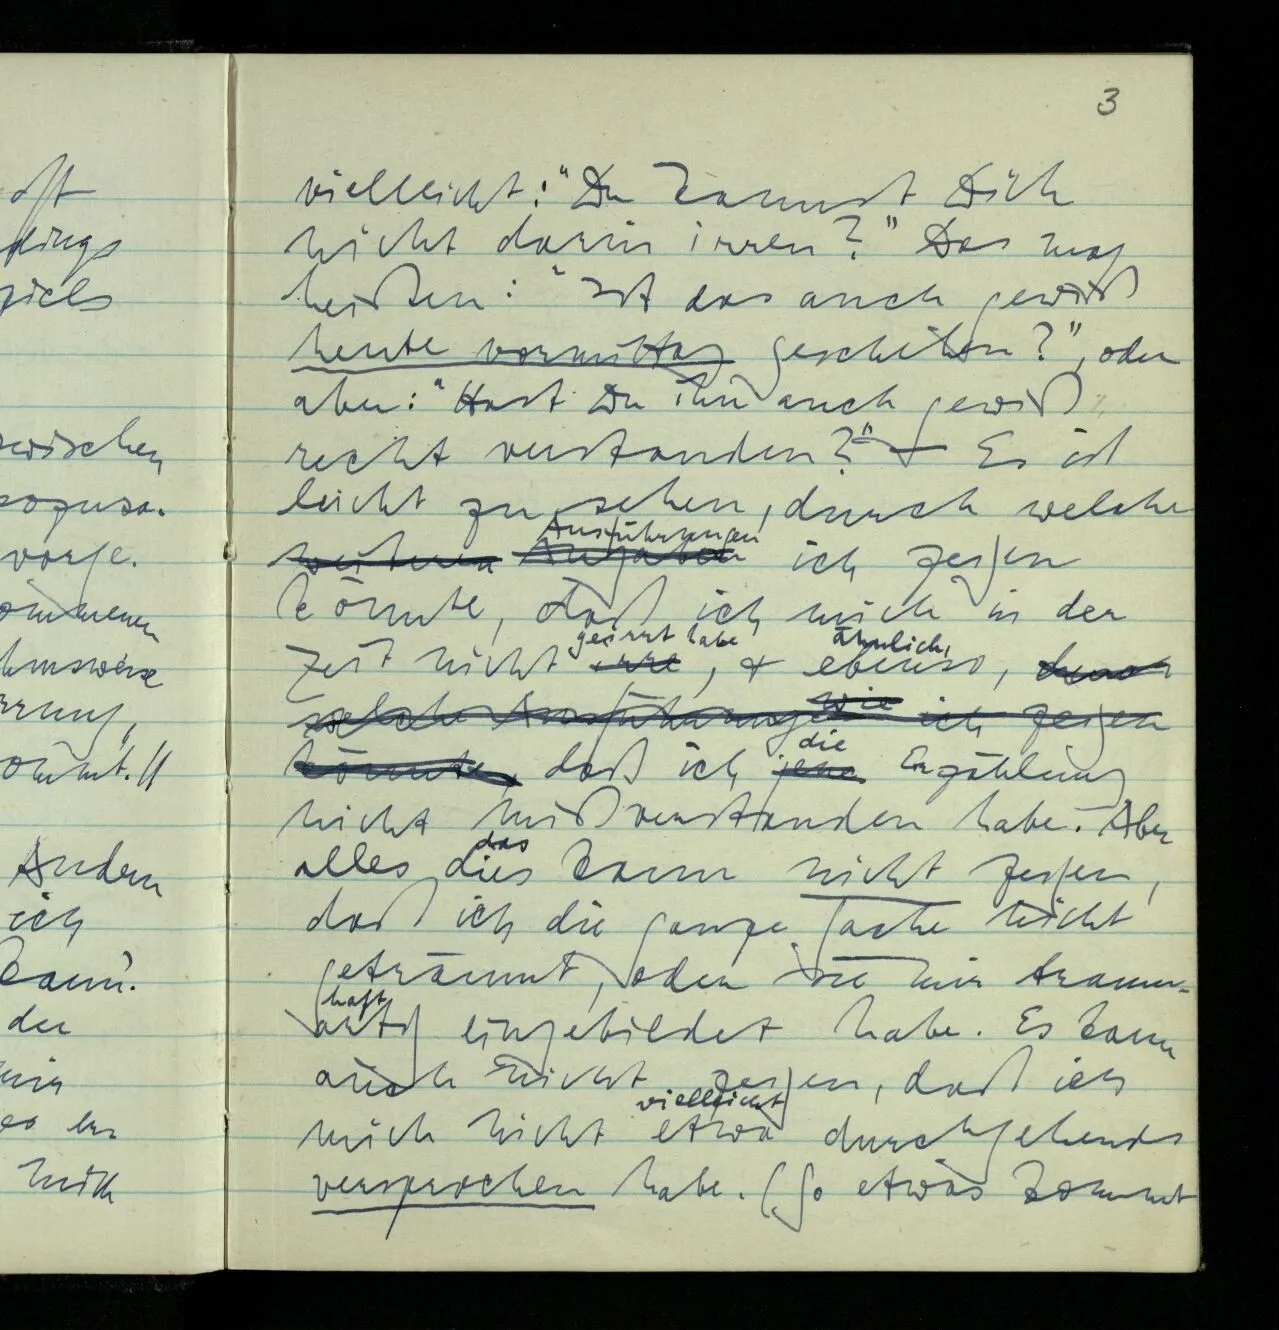 3
oft
dings
spiels
zwischen
sozusa-
vorge-
kommenen
Andern
ich
kann?
der
mir
es
mich
vielleicht: "Du kannst Dich
nicht darin irren?" Das mag
heißen: "Ist das auch gewiß
heute vormittag geschehen?", oder
aber: "Hast Du ihn auch gewiß
recht verstanden?" – Es ist
leicht zu sehen, durch welche
Ausführungen
weiteren Angaben ich zeigen
könnte, daß ich mich in der
geirrt habe ähnlich,
Zeit nicht irre, & ebenso, durch
wie
welche Ausführungen ich zeigen
die
könnte, daß ich jene Erzählung
nicht mißverstanden habe. Aber
das
alles dies kann nicht zeigen,
daß ich die ganze Sache nicht
geträumt, oder sie mir traum-
haft
artig eingebildet habe. Es kann
auch nicht zeigen, daß ich
vielleicht
mich nicht etwa durchgehends
versprochen habe. (So etwas kommt